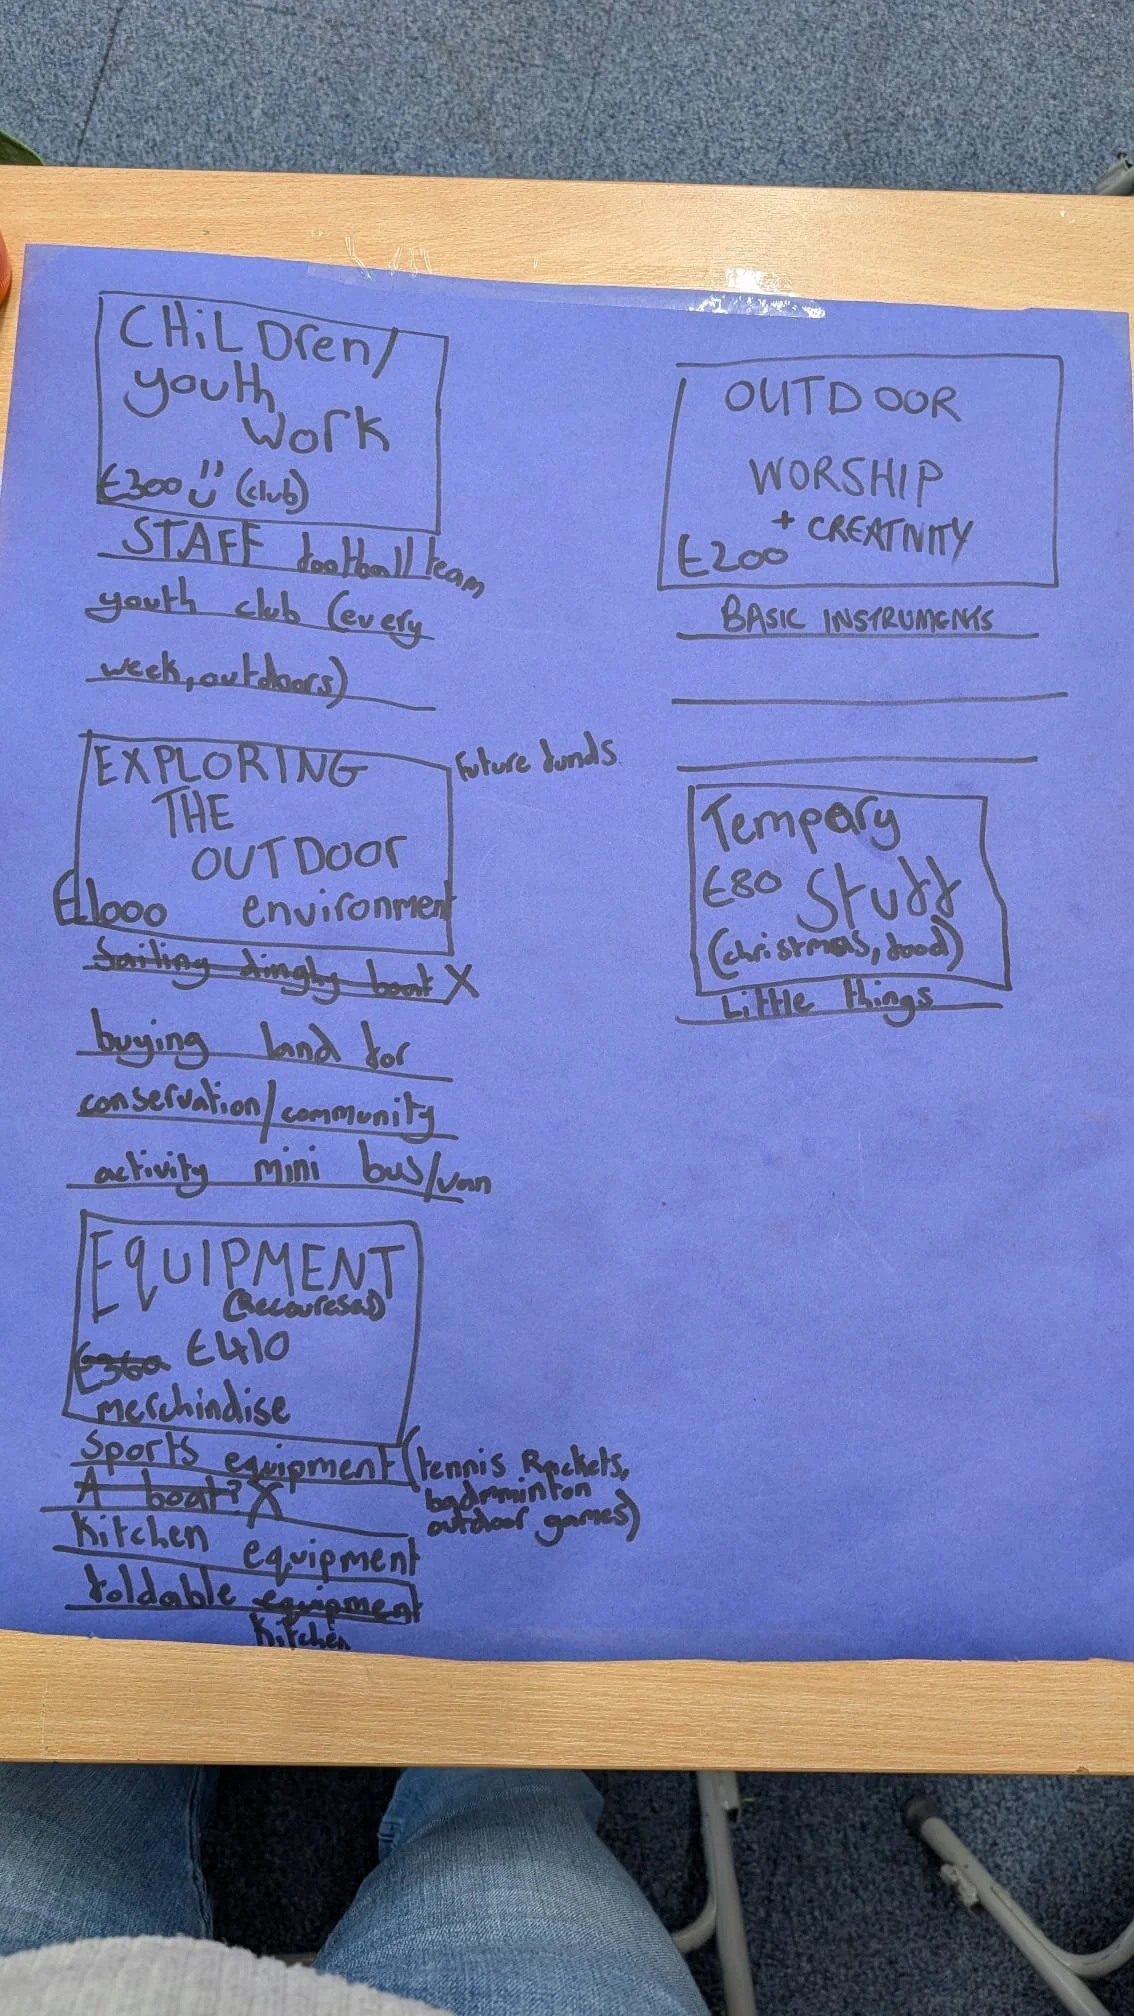 CHiLDren/
youth
work
£300 (club)
STAFF football team
youth club (every
week, outdoors)
EXPLORING
THE
OUTDOOr
£1000 environment
Future funds.
Sailing dinghy boat X
buying land for
conservation/community
activity mini bus/van
EQUIPMENT
(Recoureses)
£360 £410
merchindise
Sports equipment (tennis Rackets,
badmminton
outdoor games)
A boat? X
Kitchen equipment
foldable equipment
Kitchen
OUTDOOR
WORSHIP
+ CREATIVITY
£200
BASIC INSTRUMENTS
Tempary
£80 Stuff
(christmas, food)
Little things